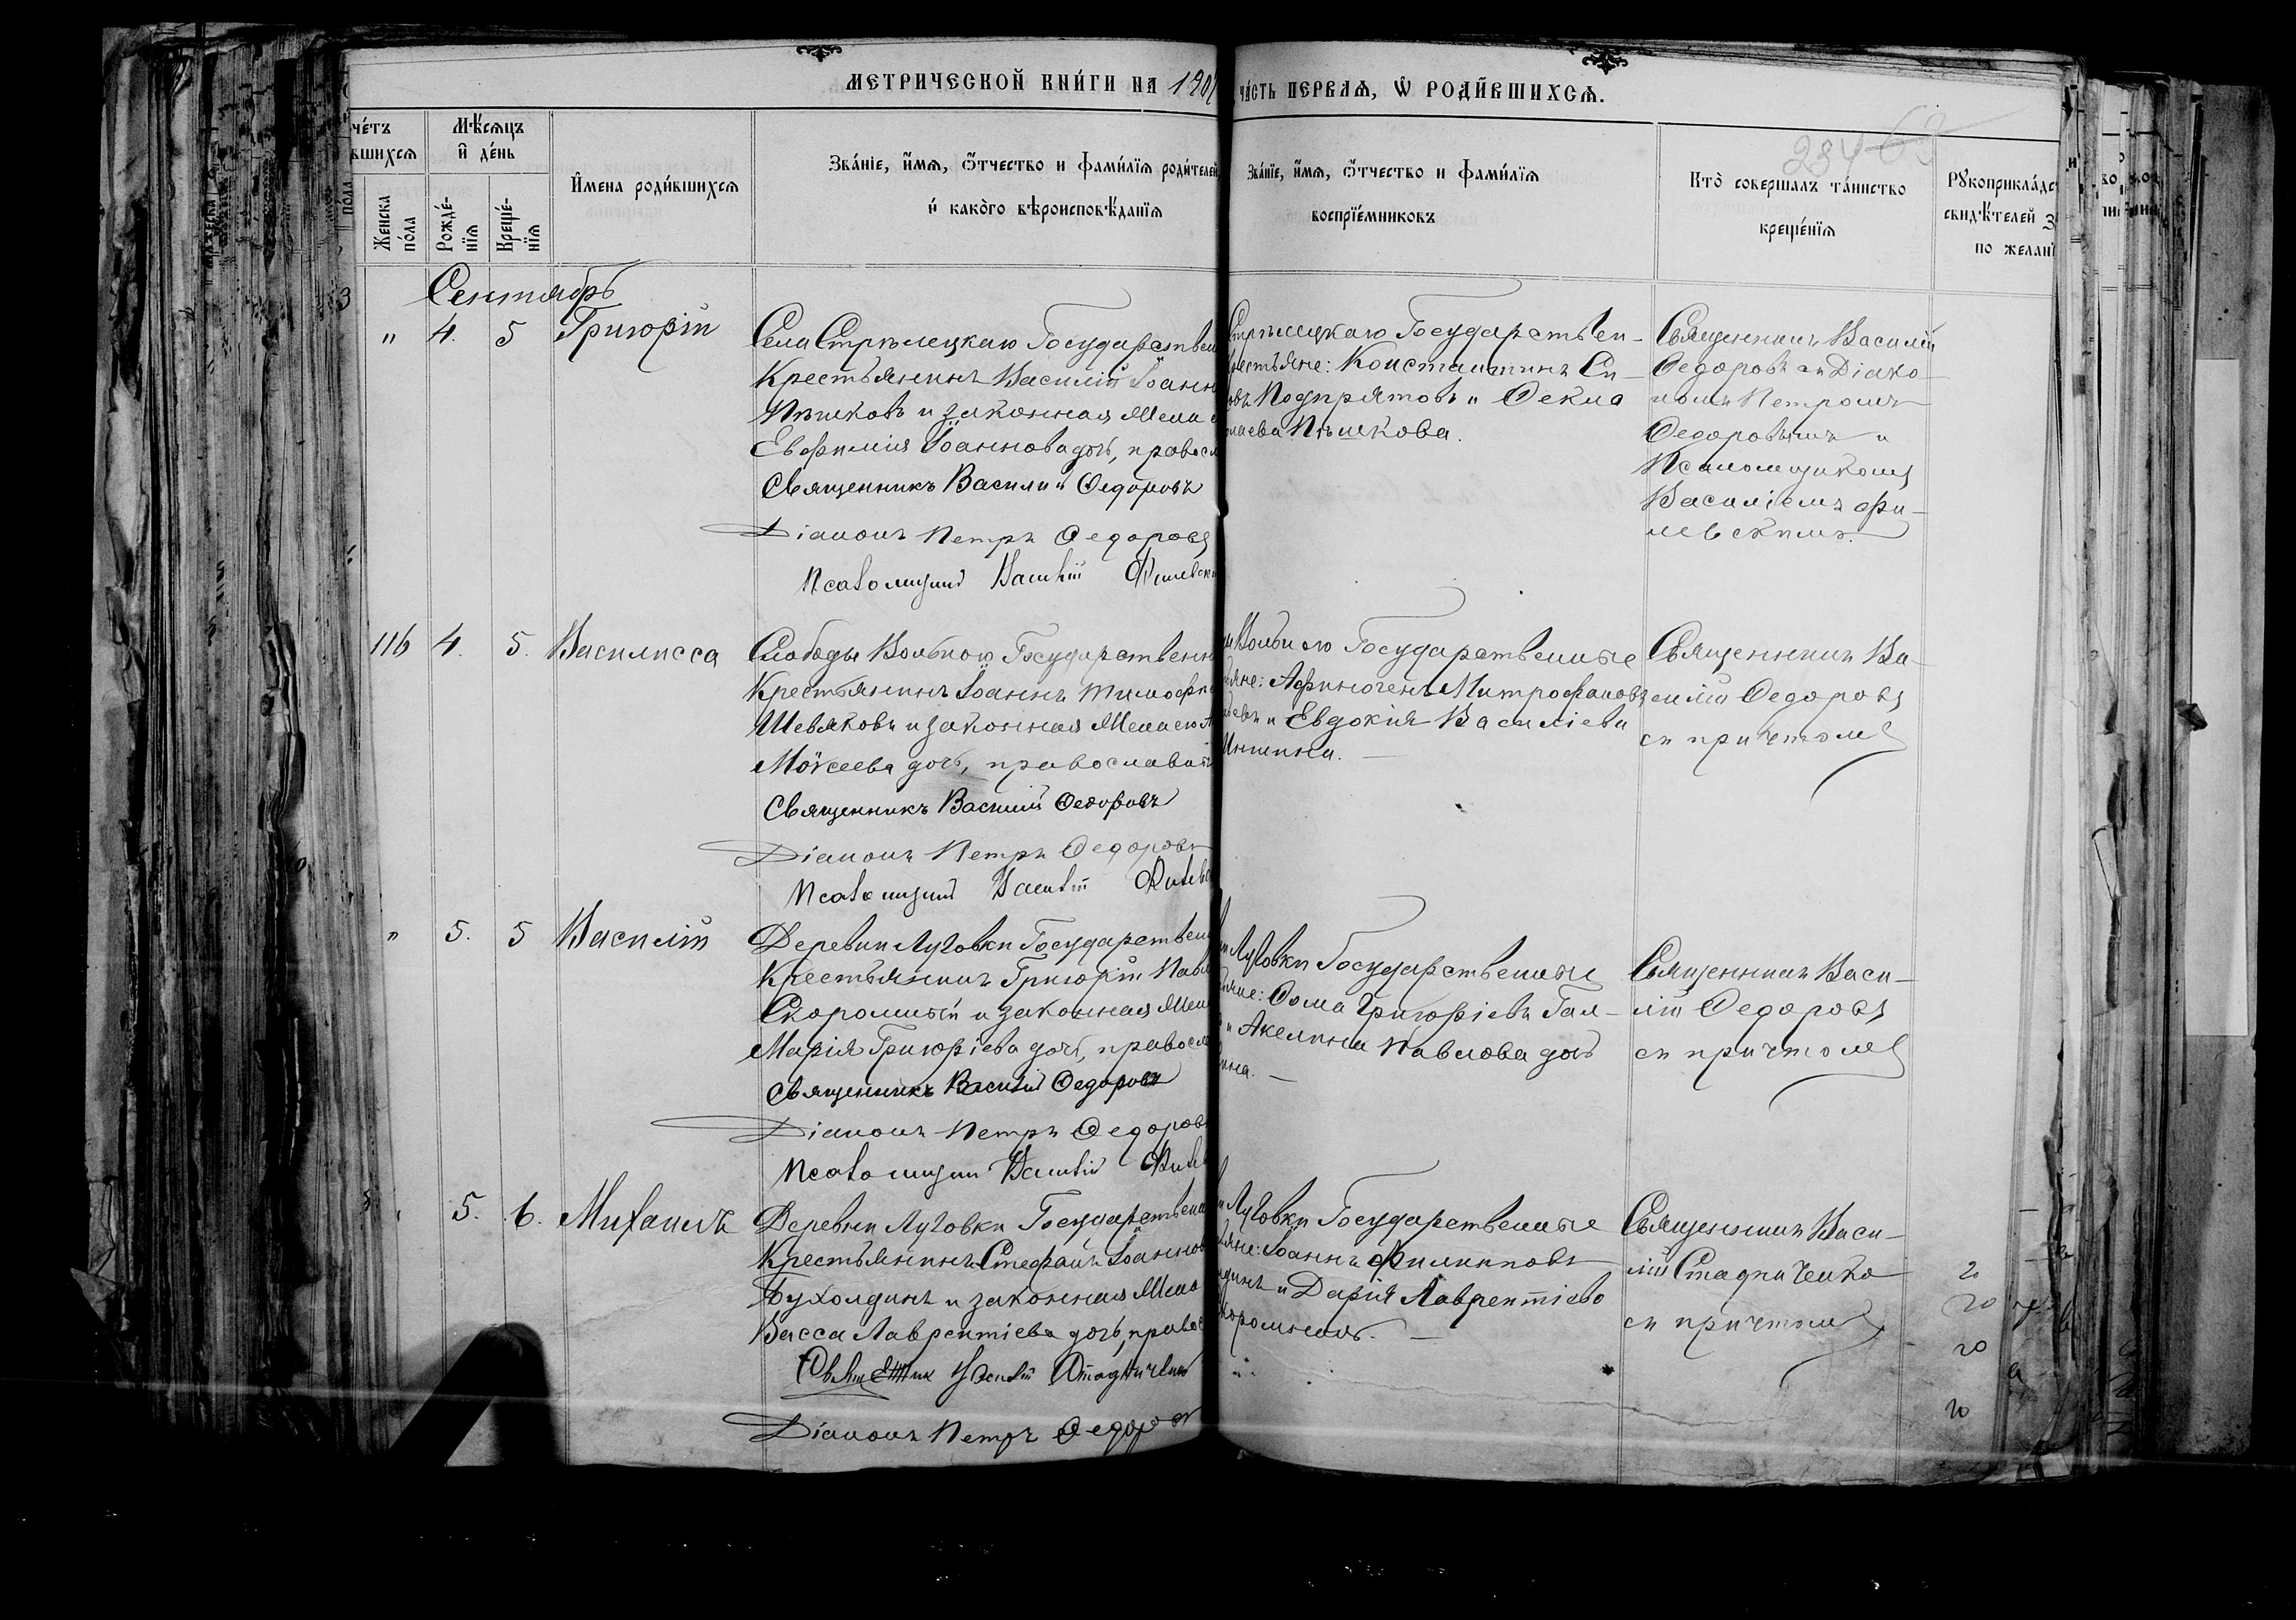 МЕТРИЧЕСКОЙ КНИ́ГИ НА
ча́сть ПЕРВАѦ, Ѡ҆ РОДИ́ВШИХСѦ.
че́тъ
вшихсѧ
Мѣ́сѧцъ
и҆ де́нь
Женска
по́ла
Рожде́-
нїѧ
Креще́-
нїѧ
И҆мена роди́вшихсѧ
Зва́нїе, и҆́мѧ, ѻ҆́тчество и фами́лїѧ роди́телей
и҆ како́го вѣроисповѣ́данїѧ
Зва́нїе, и҆́мѧ, ѻ҆́тчество и фами́лїѧ
воспрїе́мниковъ
234
Кто̀ совершалъ та́инство
креще́нїѧ
Рꙋкоприкла́дс
свидѣ́телей з
по желан
Сентябрь
" 4. 5 Григорій
Села Стрѣлецкаго Государствен
Крестьянинъ Василій Іоанн
Пѣшковъ и законная Жена е
Евфимія Іоаннова дочь, правосл
Священникъ Василій Ѳедоровъ
Діаконъ Петръ Ѳедоровъ
Псаломщикъ Василій Филевск
Стрѣлецкаго Государствен-
рестьяне: Константинъ Си-
овъ Подпрятовъ и Ѳекла
лаева Пѣшкова.
Священникъ Василій
Ѳедоровъ съ Діако-
номъ Петромъ
Ѳедоровымъ и
Псаломщикомъ
Василіемъ Фи-
левскимъ.
116 4. 5. Василисса
Слободы Вольной Государственн
Крестьянинъ Іоаннъ Тимофе
Шевяковъ и законная Жена его
Мойсеева дочь, православн
Священникъ Василій Ѳедоровъ
Діаконъ Петръ Ѳедоровъ
Псаломщикъ Василій Филев
Вольной Государственные
яне: Афиногенъ Митрофановъ
и Евдокія Василіева
Священникъ Ва-
силій Ѳедоровъ
съ причтомъ
" 5. 5 Василій
Деревни Луговки Государствен
Крестьянинъ Григорій Павл
Скоромный и законная Жен
Марія Григоріева дочь, правосл
Священникъ Василій Ѳедоровъ
Діаконъ Петръ Ѳедоровъ
Псаломщикъ Василій Филев
Луговки Государственные
яне: Ѳома Григоріевъ Гал-
и Акелина Павлова дочь
ина.
Священникъ Васи-
лій Ѳедоровъ
съ причтомъ
5. 6. Михаилъ
Деревни Луговки Государствен
Крестьянинъ Стефанъ Іоаннов
Бухолдинъ и законная Жена
Васса Лаврентіева дочь, правос
Священник Василій Стадниченко
Діаконъ Петръ Ѳедоров
Луговки Государственные
яне: Іоаннъ Филипповъ
динъ и Дарія Лаврентіева
коромнаяь.
Священникъ Васи-
лій Стадниченко
съ причтомъ
20
20
20
20